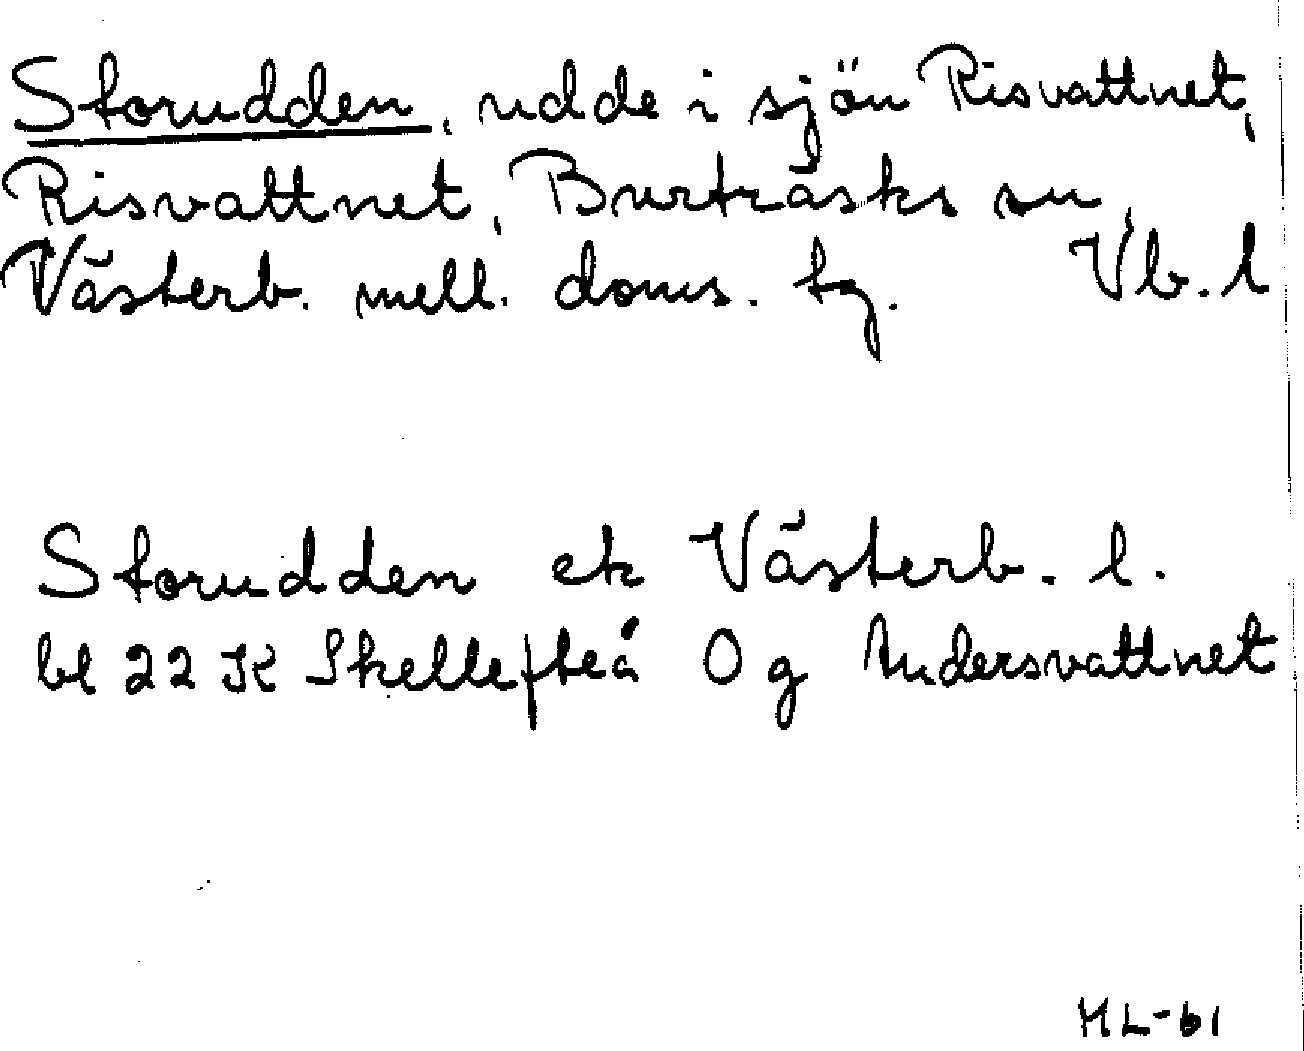 Storudden, udde i sjön Risvattnet,
Risvattnet, Burträsks sn,
Västerb. mell. doms. tg. Vb. l
Storudden ek Västerb. l.
bl 22 K Skellefteå 0 g Andersvattnet
HL-61